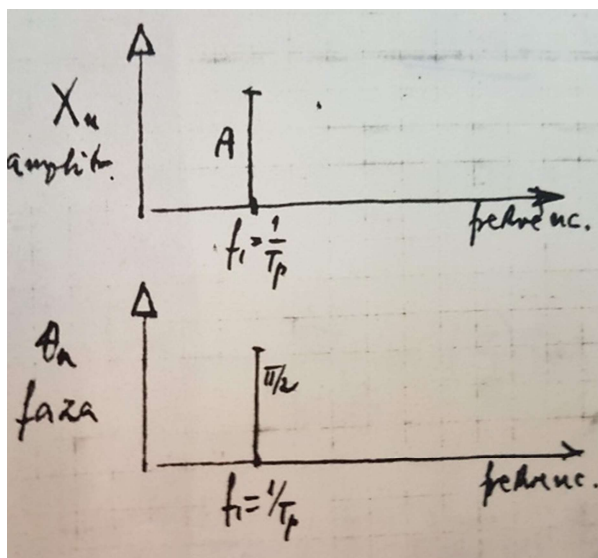 Xₙ
amplit.
A
f₁ = 1/Tₚ
frekvenc.
θₙ
faza
π/2
f₁ = 1/Tₚ
frekvenc.